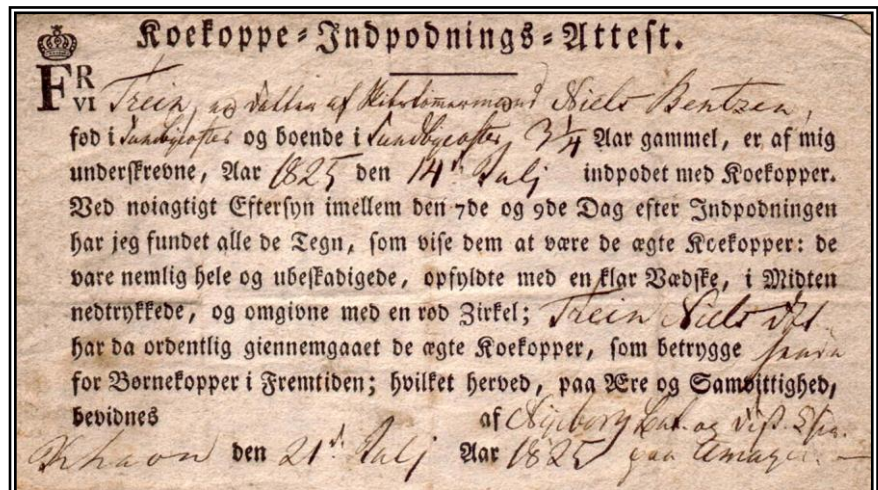 Koekoppe=Indpodnings=Attest.
FR VI Trein, en Datter af Niels Bentzen,
fød i Sundbyeoster og boende i Sundbyeoster, 3 1/4 Aar gammel, er af mig
underskrevne, Aar 1825 den 14 Julj indpodet med Koekopper.
Ved nøiagtigt Eftersyn imellem den 7de og 9de Dag efter Indpodningen
har jeg fundet alle de Tegn, som vise dem at være de ægte Koekopper: de
vare nemlig hele og ubeskadigede, opfyldte med en klar Vædske, i Midten
nedtrykkede, og omgivne med en rød Zirkel; Trein Niels
har da ordentlig giennemgaaet de ægte Koekopper, som betrygge
for Børnekopper i Fremtiden; hvilket herved, paa Ære og Samvittighed,
bevidnes af Nyeborg
Khavn den 21d Julj Aar 1825 paa Amager.